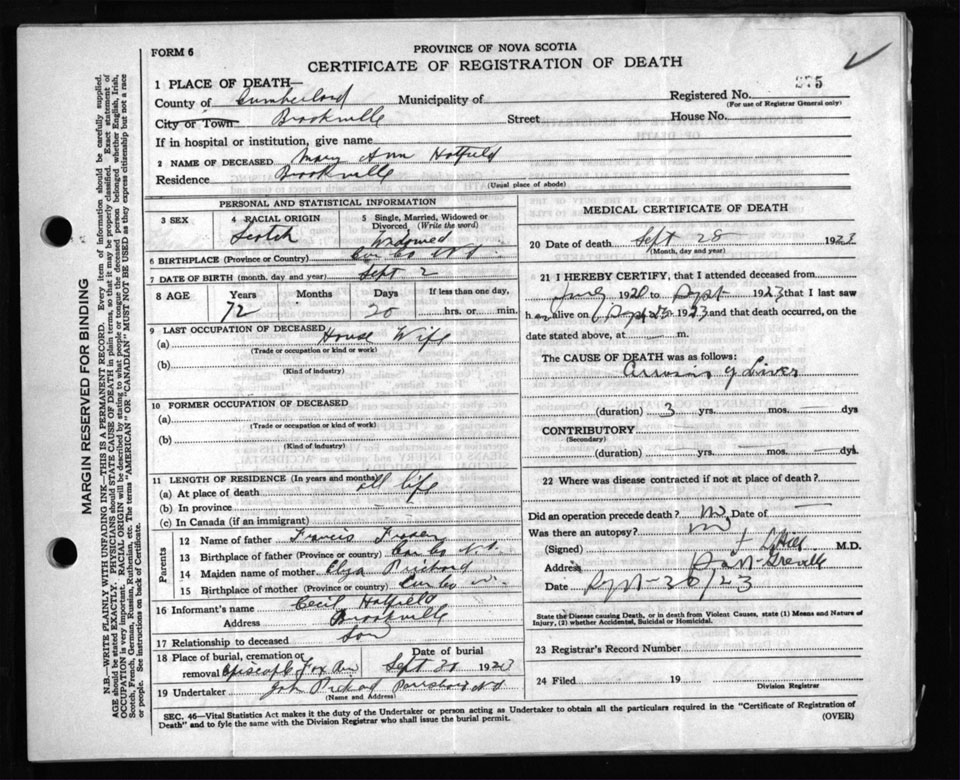 FORM 6
PROVINCE OF NOVA SCOTIA
CERTIFICATE OF REGISTRATION OF DEATH
1 PLACE OF DEATH—
County of Cumberland Municipality of
Registered No. 375
(For use of Registrar General only)
City or Town Brookville Street House No.
If in hospital or institution, give name
2 NAME OF DECEASED Mary Ann Hatfield
Residence Brookville
(Usual place of abode)
PERSONAL AND STATISTICAL INFORMATION
3 SEX
4 RACIAL ORIGIN
Scotch
5 Single, Married, Widowed or Divorced (Write the word)
Widowed
6 BIRTHPLACE (Province or Country) Cum Co N.S.
7 DATE OF BIRTH (month, day and year) Sept 2
8 AGE Years Months Days If less than one day,
72 20 hrs. or min.
9 LAST OCCUPATION OF DECEASED
(a) House Wife
(Trade or occupation or kind or work)
(b)
(Kind of industry)
10 FORMER OCCUPATION OF DECEASED
(a)
(Trade or occupation or kind of work)
(b)
(Kind of Industry)
11 LENGTH OF RESIDENCE (In years and months)
(a) At place of death All life
(b) In province
(c) In Canada (if an immigrant)
Parents
12 Name of father Francis
13 Birthplace of father (Province or country) Cum Co N.S.
14 Maiden name of mother Eliza Prichard
15 Birthplace of mother (Province or country) Cum Co
16 Informant's name Cecil Hatfield
Address Brookville
17 Relationship to deceased Son
18 Place of burial, cremation or removal Date of burial
Fox Sept 30 1923
19 Undertaker N.S
(Name and Address)
MEDICAL CERTIFICATE OF DEATH
20 Date of death Sept 28 1923
(Month, day and year)
21 I HEREBY CERTIFY, that I attended deceased from
1920 to Sept 1923 that I last saw
her alive on 1923 and that death occurred, on the
date stated above, at m.
The CAUSE OF DEATH was as follows:
Cirrosis of Liver
(duration) 3 yrs. mos. — dys
CONTRIBUTORY
(Secondary)
(duration) yrs. — mos. — dys.
22 Where was disease contracted if not at place of death?
Did an operation precede death? no Date of —
Was there an autopsy? no
(Signed) Hill M.D.
Address Port Greville
Date Sept-30/23
State the Disease causing Death, or in death from Violent Causes, state (1) Means and Nature of
Injury, (2) whether Accidental, Suicidal or Homicidal.
23 Registrar's Record Number
24 Filed 19
Division Registrar
SEC. 46—Vital Statistics Act makes it the duty of the Undertaker or person acting as Undertaker to obtain all the particulars required in the "Certificate of Registration of
Death" and to fyle the same with the Division Registrar who shall issue the burial permit.
(OVER)
MARGIN RESERVED FOR BINDING
N.B.—WRITE PLAINLY WITH UNFADING INK—THIS IS A PERMANENT RECORD. Every item of information should be carefully supplied.
AGE should be stated EXACTLY. PHYSICIANS should STATE CAUSE OF DEATH in plain terms, so that it may be properly classified. Exact statement of
OCCUPATION is very important. RACIAL ORIGIN will be described by stating to what people or tongue the deceased person belonged whether English, Irish,
Scotch, French, German, Russian, Ruthenian, etc. The terms "AMERICAN" OR "CANADIAN" MUST NOT BE USED as they express citizenship but not a race
or people. See instructions on back of Certificate.